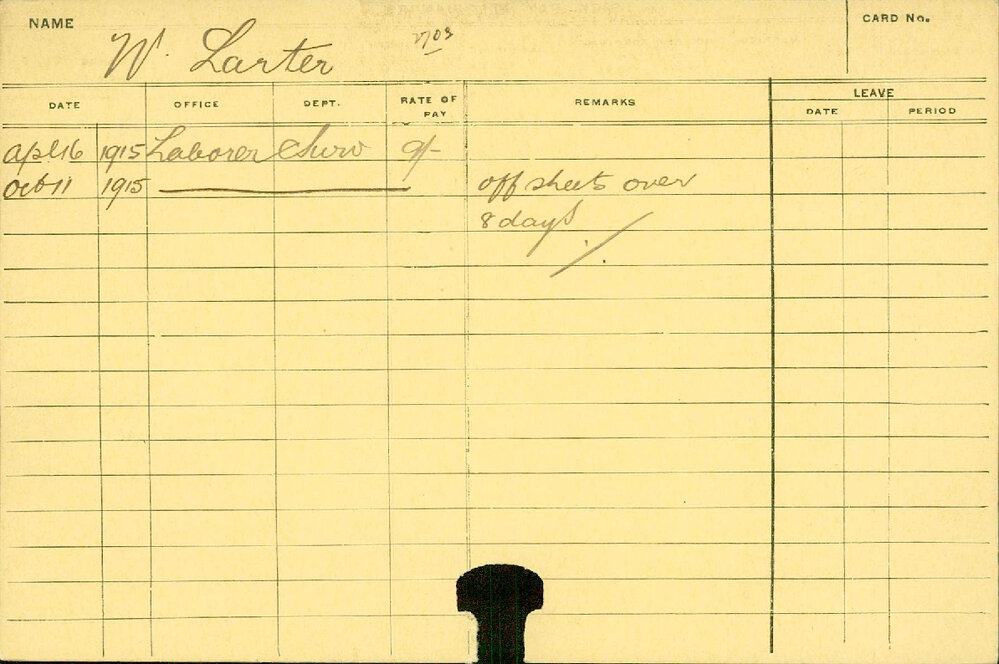 NAME
W. Larter
CARD No.
DATE OFFICE DEPT. RATE OF PAY REMARKS LEAVE
DATE PERIOD
Apl 16 1915 Laborer 9/-
Oct 11 1915 off sheets over
8 days